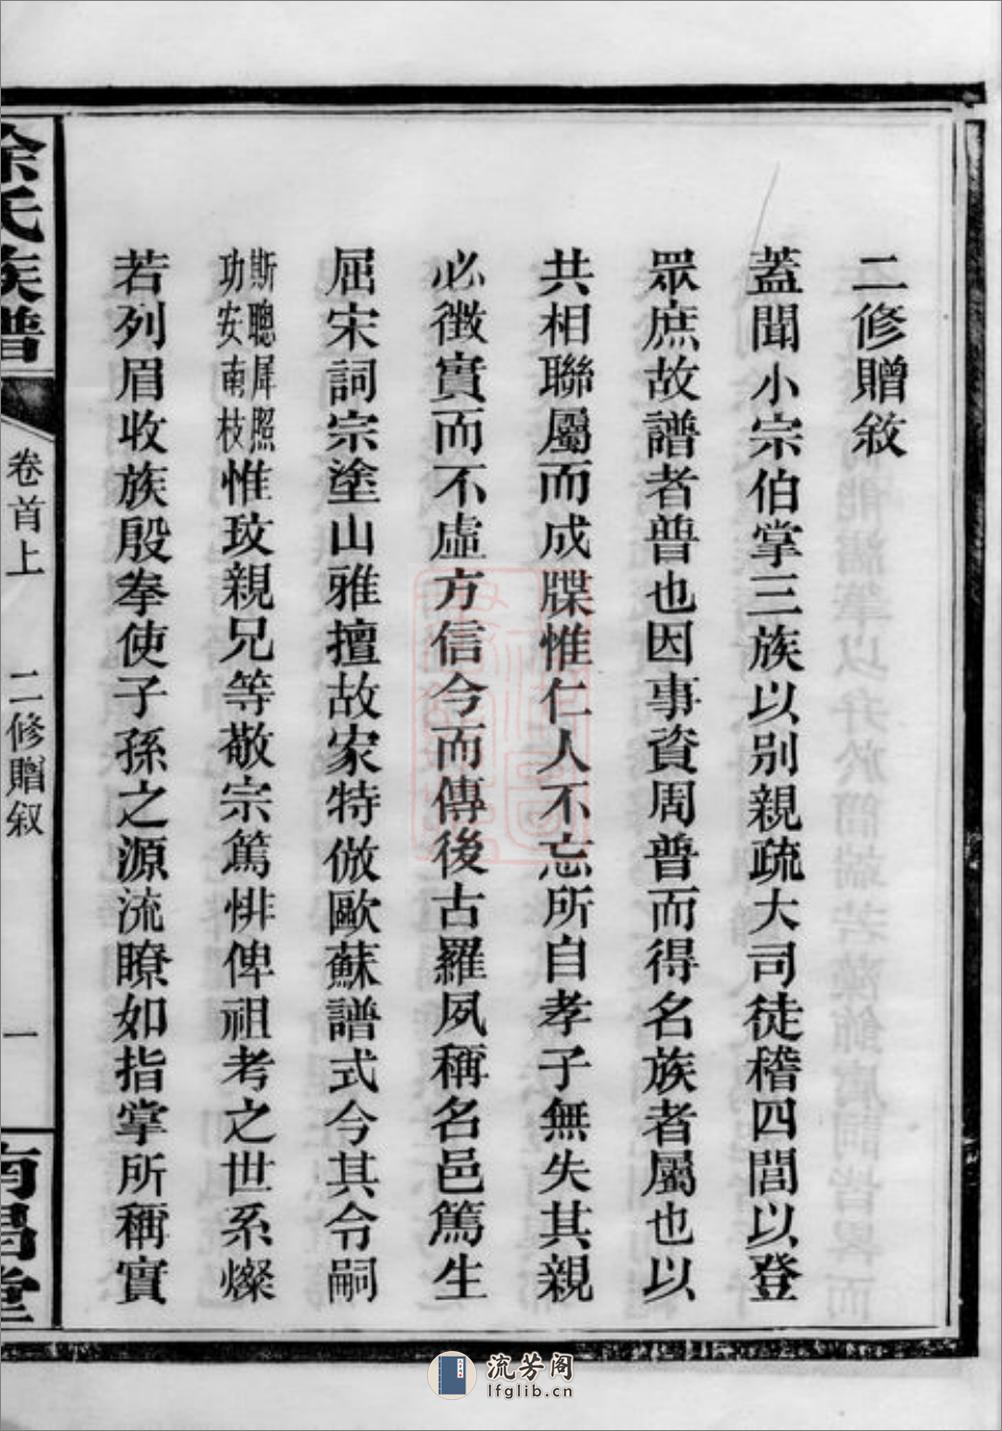 二修贈敘
蓋聞小宗伯掌三族以別親疏大司徒稽四閭以登
眾庶故譜者普也因事資周普而得名族者屬也以
共相聯屬而成牒惟仁人不忘所自孝子無失其親
必徵實而不虛方信今而傳後古羅夙稱名邑篤生
屈宋詞宗塗山雅擅故家特倣歐蘇譜式今其令嗣
斯聰犀照
功安南枝
惟玟親兄等敬宗篤悱俾祖考之世系燦
若列眉收族殷拳使子孫之源流瞭如指掌所稱實
氏族譜
卷首上
二修贈敘
一
南昌堂
流芳阁
lfglib.cn